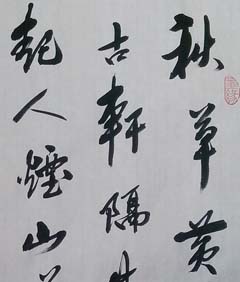 秋草黄
古軒隔
起人煙山